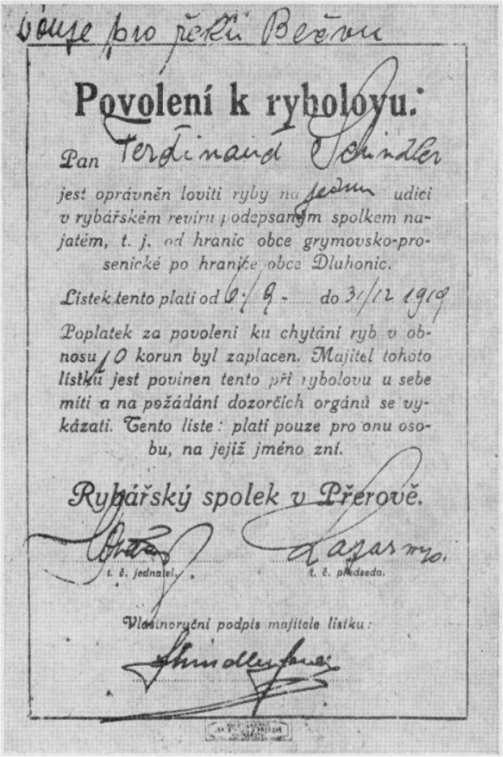 pouze pro řeku Bečvu
Povolení k rybolovu.
Pan Ferdinand Schindler
jest oprávněn loviti ryby na jednu udici
v rybářském revíru podepsaným spolkem na-
jatém, t. j. od hranic obce grymovsko-pro-
senické po hranice obce Dluhonic.
Lístek tento platí od 1/9 - do 31/12 1919
Poplatek za povolení ku chytání ryb v ob-
nosu 10 korun byl zaplacen. Majitel tohoto
lístku jest povinen tento při rybolovu u sebe
míti a na požádání dozorčích orgánů se vy-
kázati. Tento liste: platí pouze pro onu oso-
bu, na jejíž jméno zní.
Rybářský spolek v Přerově.
t. č. jednatel. t. č. předseda.
Vlastnoruční podpis majitele lístku: